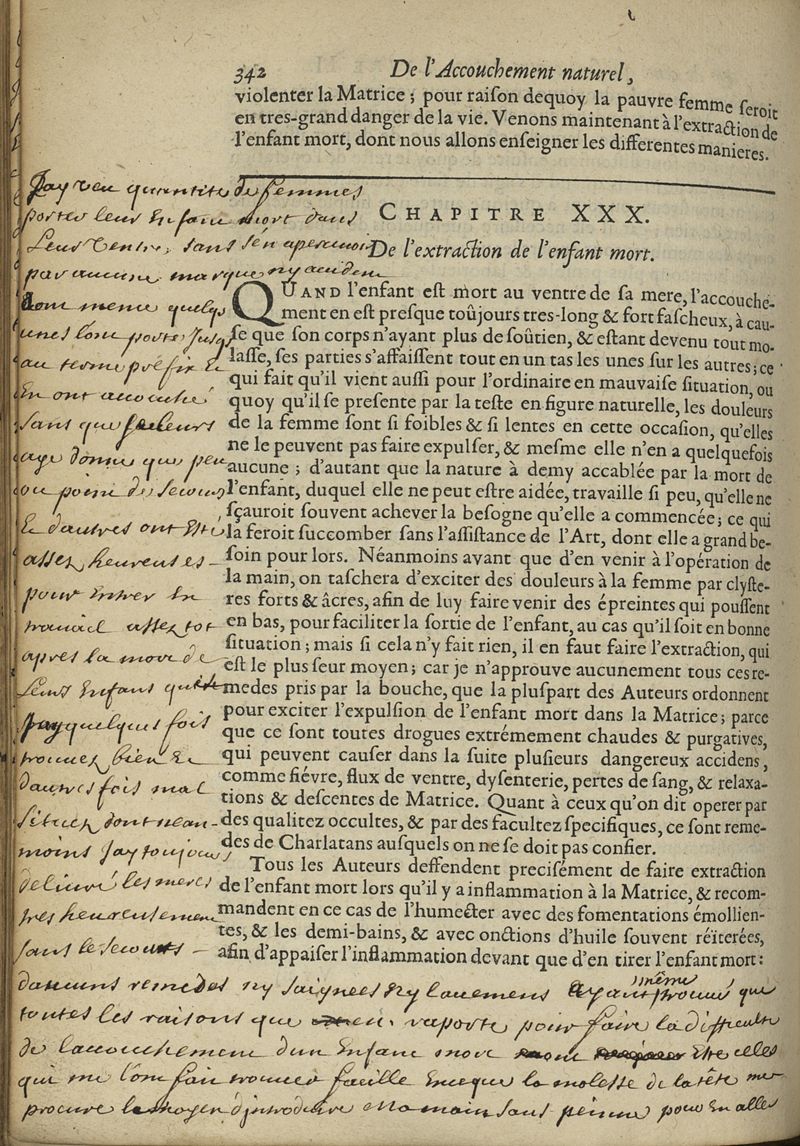 342 De l'Accouchement naturel,
violenter la Matrice ; pour raiſon dequoy la pauvre femme ſeroit
en tres-grand danger de la vie. Venons maintenant à l'extraction de
l'enfant mort, dont nous allons enſeigner les differentes manieres.
CHAPITRE XXX.
De l'extraction de l'enfant mort.
QUAND l'enfant eſt mort au ventre de ſa mere, l'accouche-
ment en eſt preſque toûjours tres-long & fort faſcheux, à cau-
ſe que ſon corps n'ayant plus de ſoûtien, & eſtant devenu tout mo-
laſſe, ſes parties s'affaiſſent tout en un tas les unes ſur les autres ; ce
qui fait qu'il vient auſſi pour l'ordinaire en mauvaiſe ſituation, ou
quoy qu'il ſe preſente par la teſte en figure naturelle, les douleurs
de la femme ſont ſi foibles & ſi lentes en cette occaſion, qu'elles
ne le peuvent pas faire expulſer, & meſme elle n'en a quelquefois
aucune ; d'autant que la nature à demy accablée par la mort de
l'enfant, duquel elle ne peut eſtre aidée, travaille ſi peu, qu'elle ne
ſçauroit ſouvent achever la beſogne qu'elle a commencée ; ce qui
la feroit ſuccomber ſans l'aſſiſtance de l'Art, dont elle a grand be-
ſoin pour lors. Néanmoins avant que d'en venir à l'opération de
la main, on taſchera d'exciter des douleurs à la femme par clyſte-
res forts & âcres, afin de luy faire venir des épreintes qui pouſſent
en bas, pour faciliter la ſortie de l'enfant, au cas qu'il ſoit en bonne
ſituation ; mais ſi cela n'y fait rien, il en faut faire l'extraction, qui
eſt le plus ſeur moyen ; car je n'approuve aucunement tous ces re-
medes pris par la bouche, que la pluſpart des Auteurs ordonnent
pour exciter l'expulſion de l'enfant mort dans la Matrice ; parce
que ce ſont toutes drogues extrémement chaudes & purgatives,
qui peuvent cauſer dans la ſuite pluſieurs dangereux accidens,
comme fiévre, flux de ventre, dyſenterie, pertes de ſang, & relaxa-
tions & deſcentes de Matrice. Quant à ceux qu'on dit operer par
des qualitez occultes, & par des facultez ſpecifiques, ce ſont reme-
des de Charlatans auſquels on ne ſe doit pas confier.
Tous les Auteurs deffendent precisément de faire extraction
de l'enfant mort lors qu'il y a inflammation à la Matrice, & recom-
mandent en ce cas de l'humecter avec des fomentations émollien-
tes, & les demi-bains, & avec onctions d'huile ſouvent réïterées,
afin d'appaiſer l'inflammation devant que d'en tirer l'enfant mort :
Jay veu quantité de femmes
porter leur Enfans mort dans
Leur Ventre, sans sen apercevoir
par aucune marque ny accident
dont mesme quelqu
unes l'ont porté Jusqu
au terme prefix &
En ont accouché
sans que
aye donné que peu
ou point de secours
& dautres ont Esté
asses heureuses
pour entrer En
travail asses tot
apres la mort de
Leurs Enfans
quelques fois
trouvez bien &
dautres fois mal
situez dont nean-
moins Jay toujours
delivré les meres
tres heureusement
sans le secours
daucuns remedes ny saignees Ny lavemens Ayant même trouvé que
toutes les raisons que raporte pour faire la difficulté
de laccouchement dun Enfant mort Etre celles
qui me l'ont fait trouver facille que la molesse de la tête me
procure le moyen d'introduire ma main sans peine pour En aller